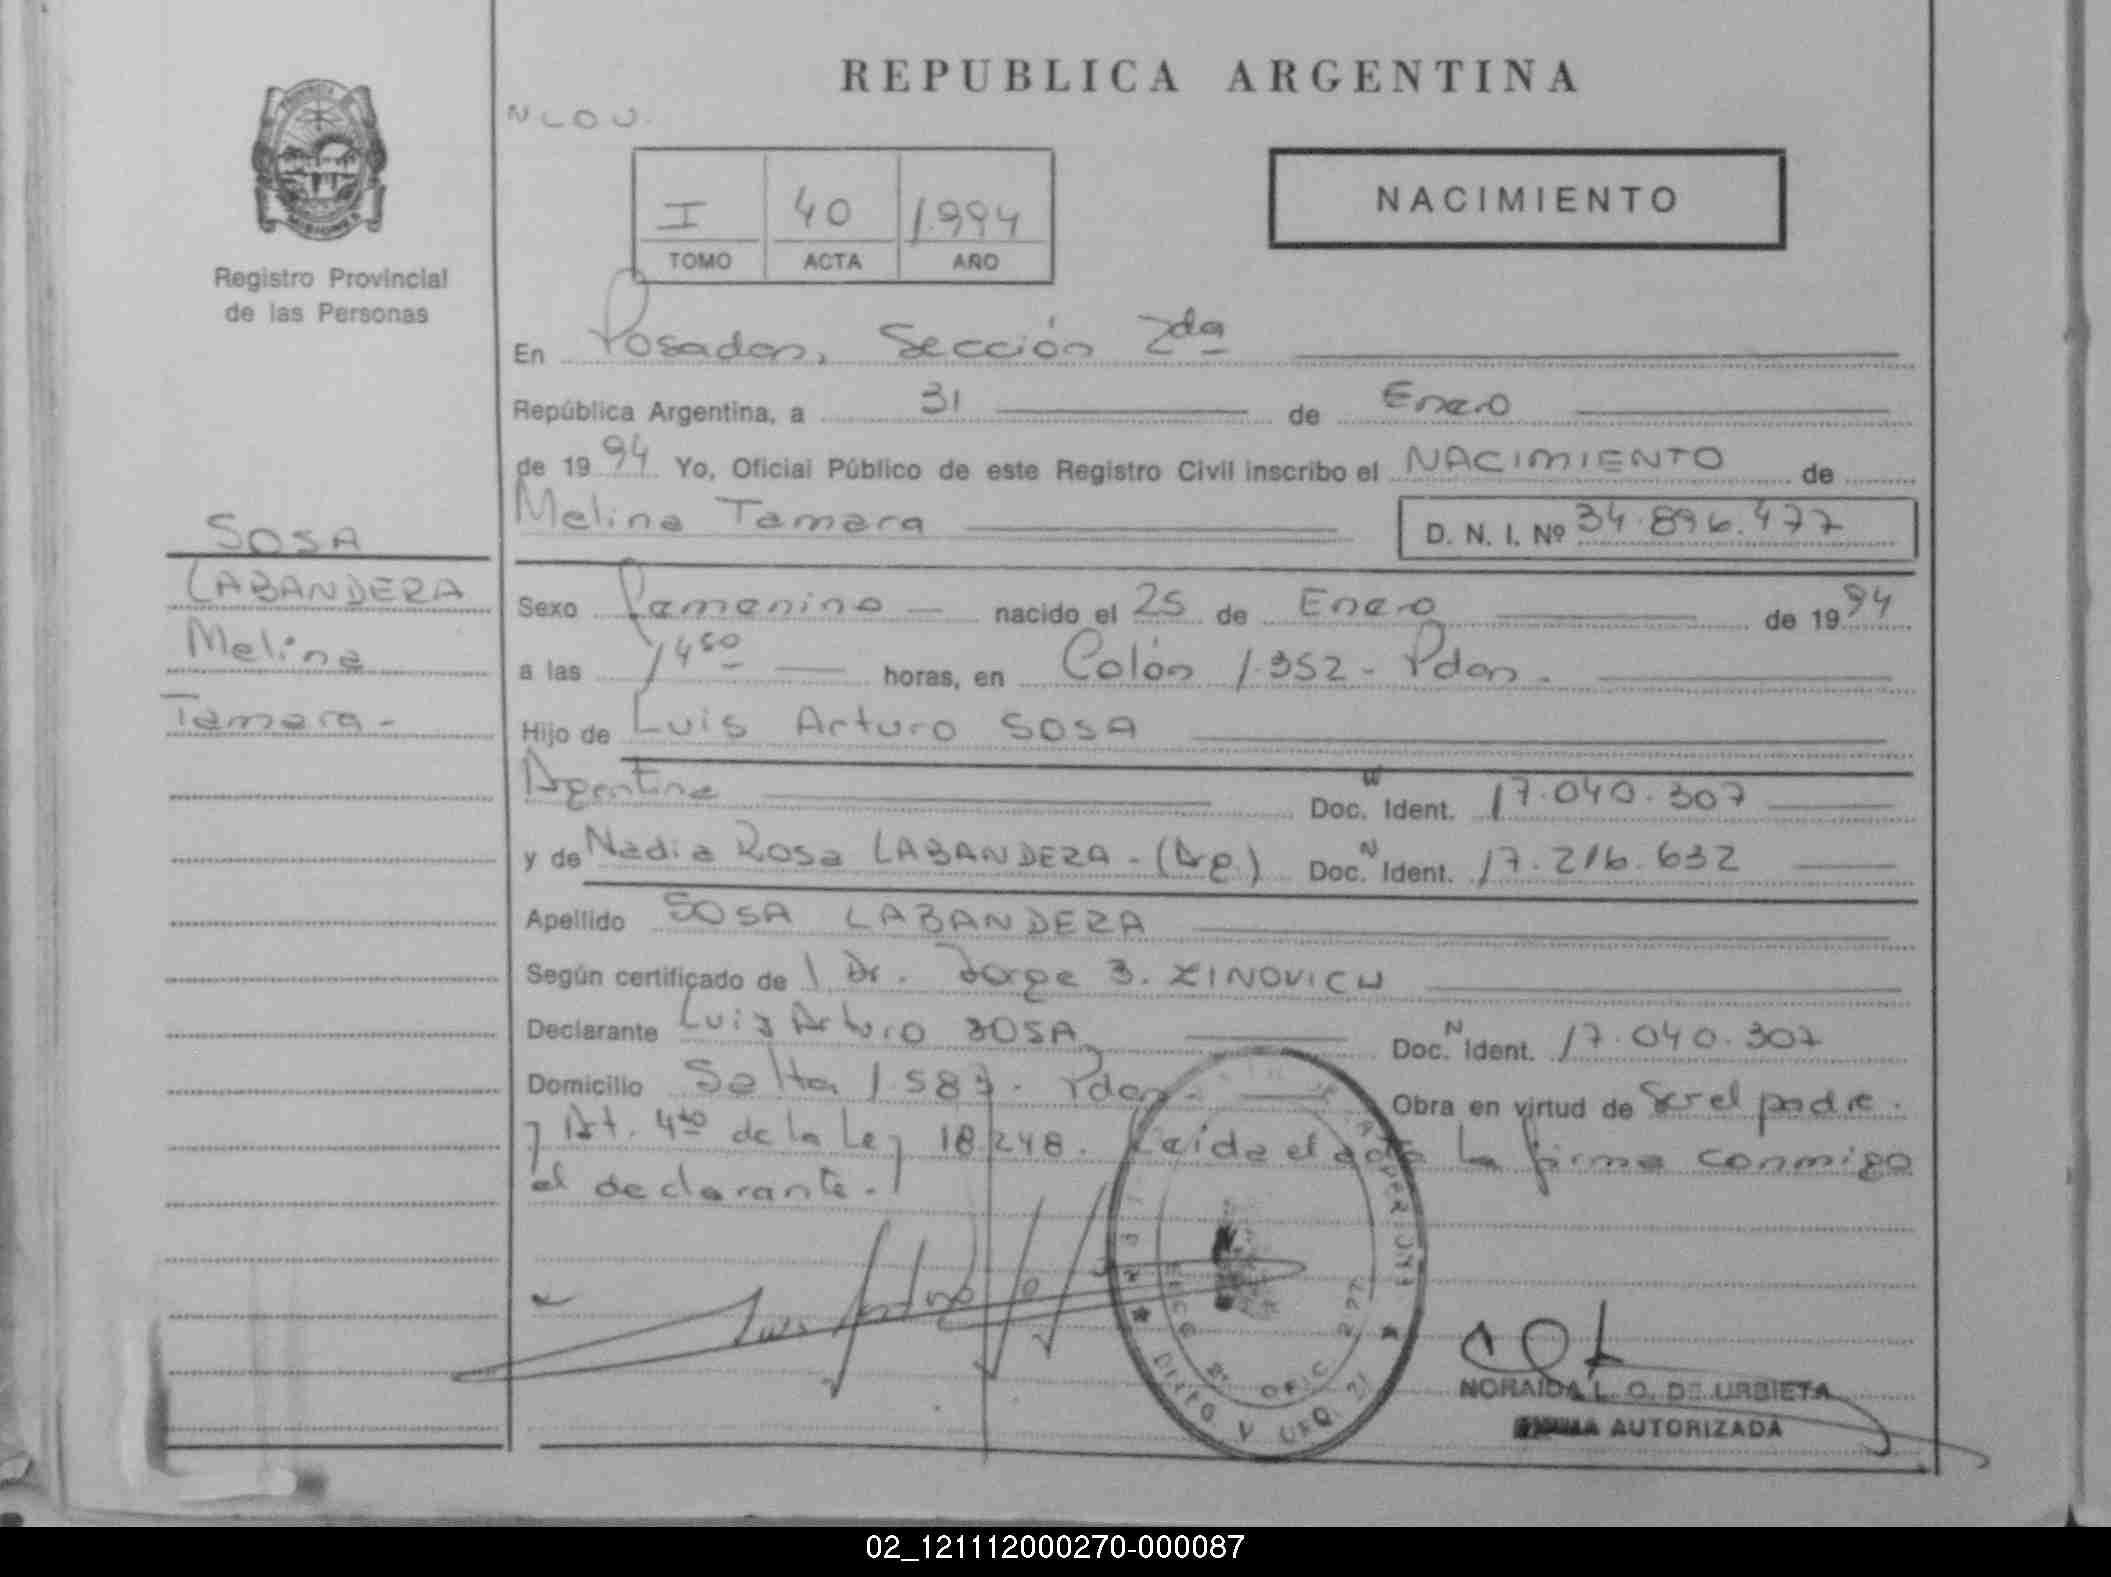 REPUBLICA ARGENTINA
NLOU.
NACIMIENTO
I 40 1.994
TOMO ACTA AÑO
Registro Provincial
de las Personas
En Posadas, Sección 2da
República Argentina, a 31 de Enero
de 1994 Yo, Oficial Público de este Registro Civil inscribo el NACIMIENTO de
Melina Tamara D. N. I. Nº 34.896.477
SOSA
LABANDERA
Melina
Tamara-
Sexo Femenino nacido el 25 de Enero de 1994
a las 1450 horas, en Colón 1.352 - Pdas.
Hijo de Luis Arturo SOSA
Argentina Doc. Ident. 17.040.307
y de Nadia Rosa LABANDERA - (Arg.) Doc. N Ident. 17.216.632
Apellido SOSA LABANDERA
Según certificado de l Dr. Jorge B. ZINOVICH
Declarante Luis Arturo SOSA Doc. N Ident. 17.040.307
Domicilio Salta 1.589 - Pdas. Obra en virtud de Ser el padre.
y Art. 4to de la Ley 18.248. Leída el acta la firma conmigo
el declarante.
NORAIDA L. O. DE URBIETA
FIRMA AUTORIZADA
02_121112000270-000087